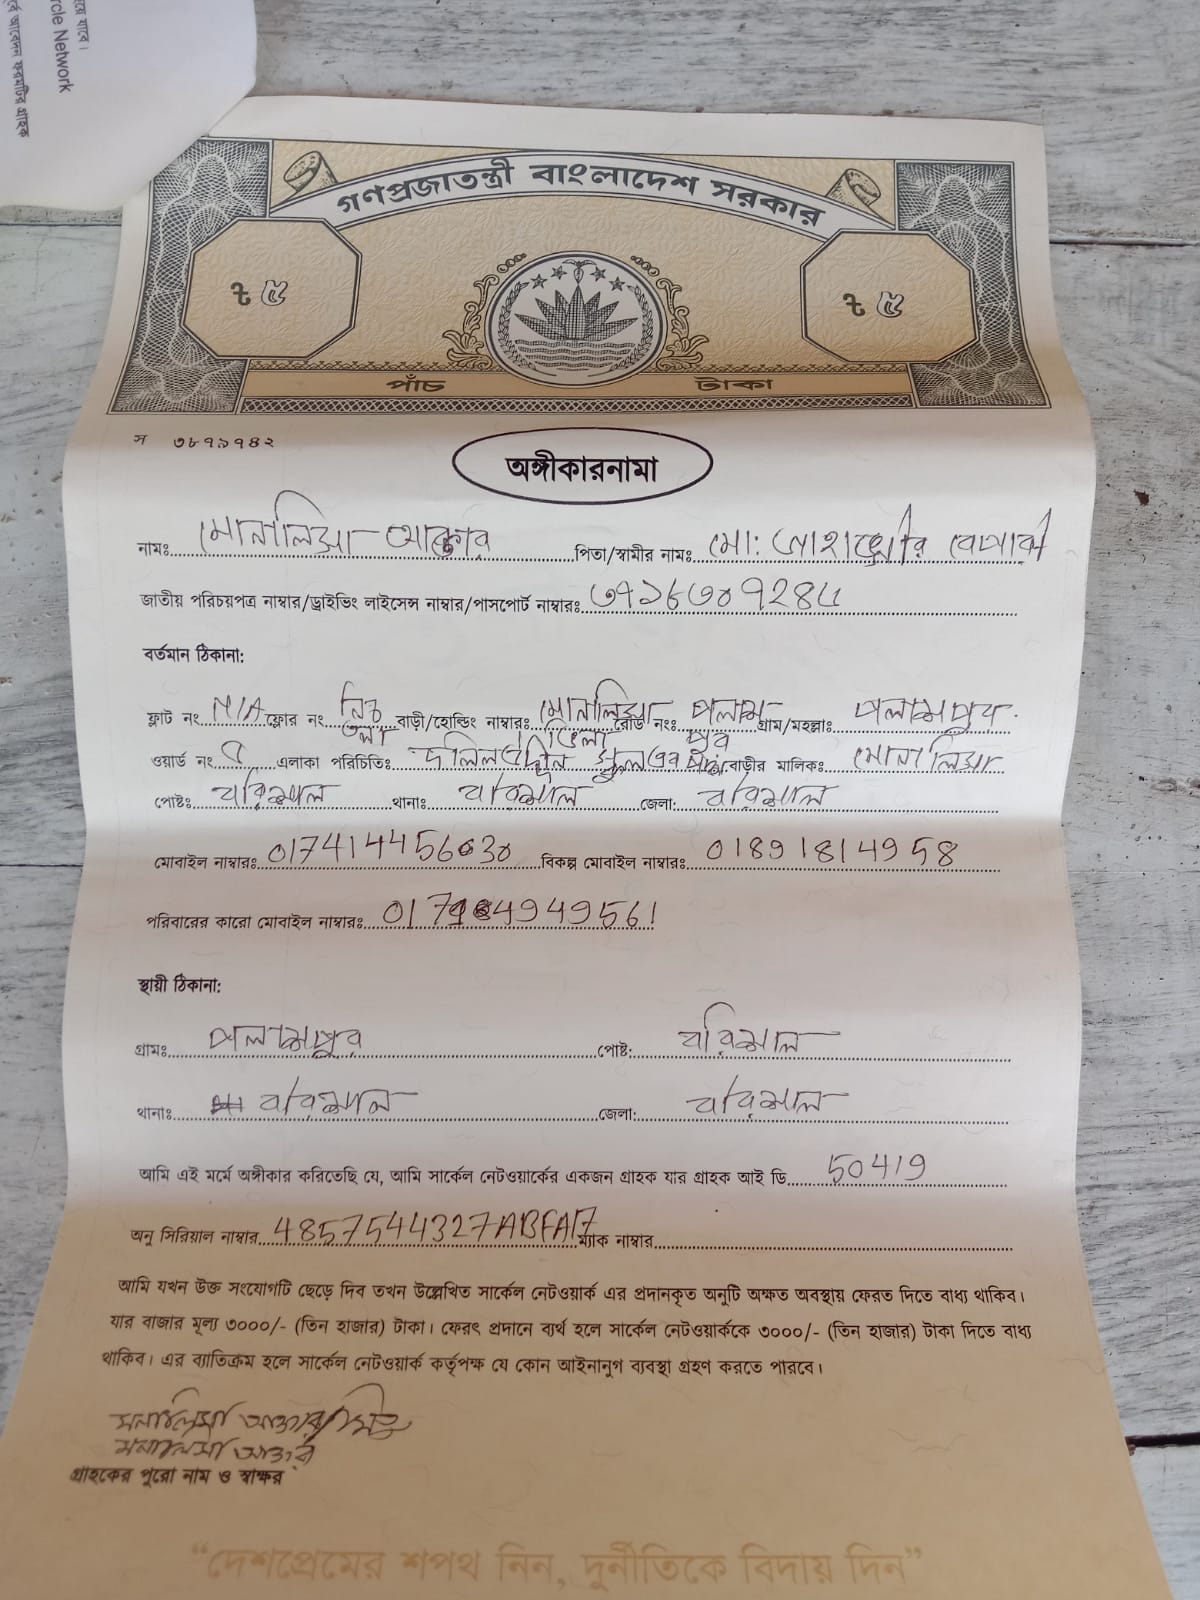 য়ে যাবে।
rcle Network
র্বে আবেদন ফরমটির গ্রাহক
গণপ্রজাতন্ত্রী বাংলাদেশ সরকার
৳ ৫ ৳ ৫
পাঁচ টাকা
স ৩৮৭৯৭৪২
অঙ্গীকারনামা
নামঃ মোনালিসা আক্তার পিতা/স্বামীর নামঃ মো: জাহাঙ্গীর বেপারী
জাতীয় পরিচয়পত্র নাম্বার/ড্রাইভিং লাইসেন্স নাম্বার/পাসপোর্ট নাম্বারঃ
বর্তমান ঠিকানা:
ফ্লাট নং N/A ফ্লোর নং নিচ তলা বাড়ী/হোল্ডিং নাম্বারঃ মোনালিসা ভিলা রোড নংঃ পলাশপুর গ্রাম/মহল্লাঃ পলাশপুর
ওয়ার্ড নং এলাকা পরিচিতিঃ স্কুল এর বাড়ীর মালিকঃ মোনালিসা
পোষ্টঃ বরিশাল থানাঃ বরিশাল জেলা: বরিশাল
মোবাইল নাম্বারঃ বিকল্প মোবাইল নাম্বারঃ 01891814958
পরিবারের কারো মোবাইল নাম্বারঃ
স্থায়ী ঠিকানা:
গ্রামঃ পলাশপুর পোষ্ট: বরিশাল
থানাঃ বরিশাল জেলা: বরিশাল
আমি এই মর্মে অঙ্গীকার করিতেছি যে, আমি সার্কেল নেটওয়ার্কের একজন গ্রাহক যার গ্রাহক আই ডি 50419
অনু সিরিয়াল নাম্বার 4857544327ABFA17 ম্যাক নাম্বার
আমি যখন উক্ত সংযোগটি ছেড়ে দিব তখন উল্লেখিত সার্কেল নেটওয়ার্ক এর প্রদানকৃত অনুটি অক্ষত অবস্থায় ফেরত দিতে বাধ্য থাকিব।
যার বাজার মূল্য ৩০০০/- (তিন হাজার) টাকা। ফেরৎ প্রদানে ব্যর্থ হলে সার্কেল নেটওয়ার্ককে ৩০০০/- (তিন হাজার) টাকা দিতে বাধ্য
থাকিব। এর ব্যাতিক্রম হলে সার্কেল নেটওয়ার্ক কর্তৃপক্ষ যে কোন আইনানুগ ব্যবস্থা গ্রহণ করতে পারবে।
মনালিসা আক্তার
মনালিসা আক্তার
গ্রাহকের পুরো নাম ও স্বাক্ষর
“দেশপ্রেমের শপথ নিন, দুর্নীতিকে বিদায় দিন”